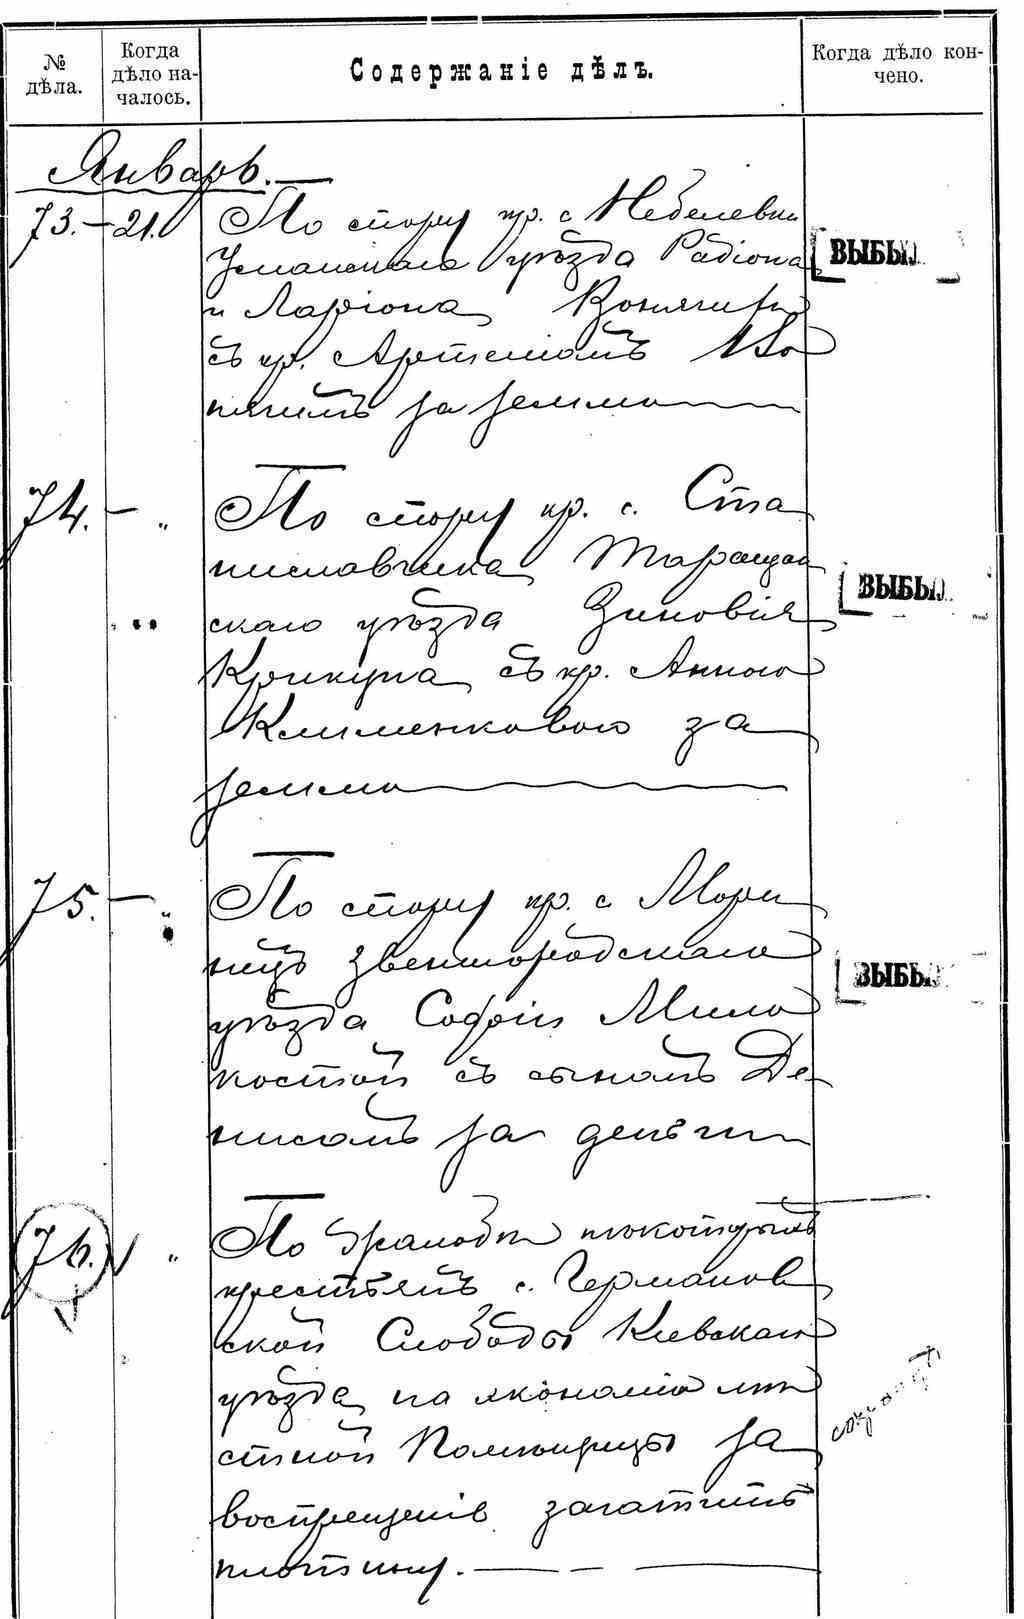 № дѣла.
Когда дѣло на-
чалось.
Содержаніе дѣлъ.
Когда дѣло кон-
чено.
Январь.
73. — 21.
По спору кр. с Небелевки
Уманскаго уѣзда Радіона
и Ларіона
съ кр. Артемомъ
за землю
ВЫБЫЛ
74. — "
По спору кр. с. Ста
ниславчика Таращан
скаго уѣзда Зиновія
Крикуна съ кр. Анною
Клименковою за
землю
ВЫБЫЛ
75. — "
По спору кр. с Мори
нецъ Звенигородскаго
уѣзда Софіи Мило
костой съ сыномъ Де-
нисомъ за деньги
ВЫБЫ
76. "
По жалобѣ некоторыхъ
крестьянъ с. Германов
ской Слободы Кіевскаго
уѣзда на экономію мѣ
стной Помѣщицы за
воспрещеніе загатить
плотину.